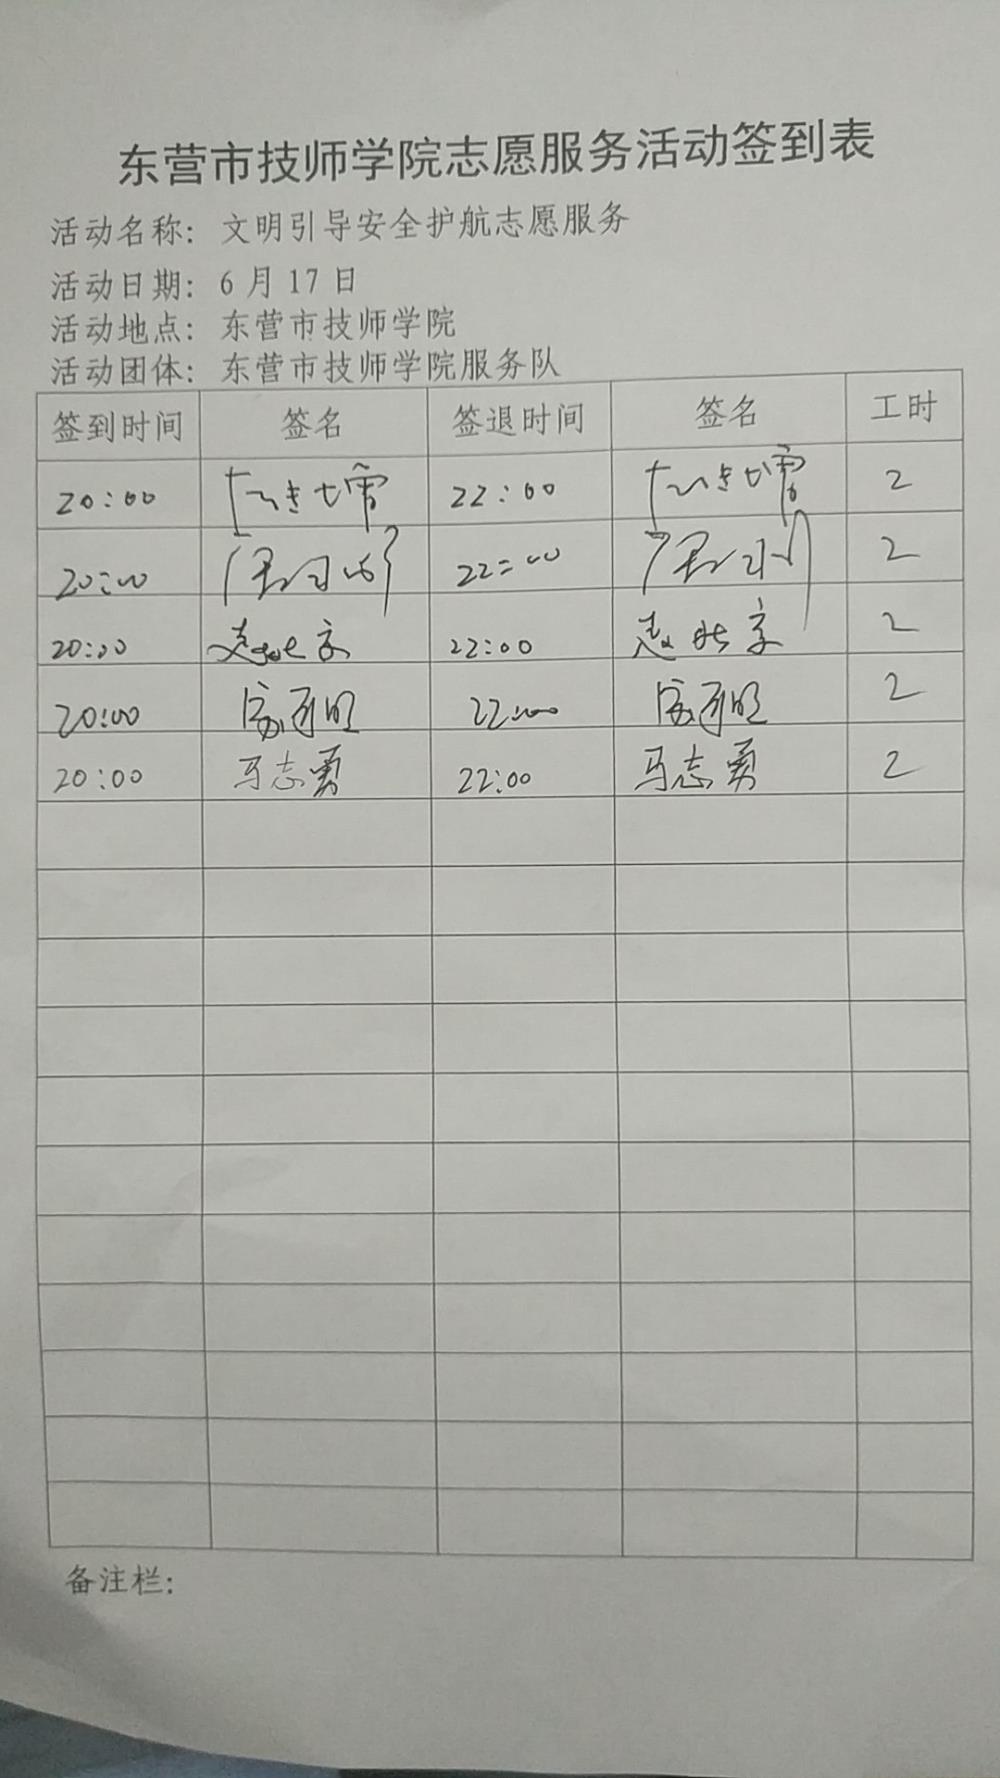 东营市技师学院志愿服务活动签到表
活动名称：文明引导安全护航志愿服务
活动日期：6月17日
活动地点：东营市技师学院
活动团体：东营市技师学院服务队
签到时间 签名 签退时间 签名 工时
20:00 22:00 2
20:00 22:00 2
20:00 22:00 2
20:00 22:00 2
20:00 马志勇 22:00 马志勇 2
备注栏：